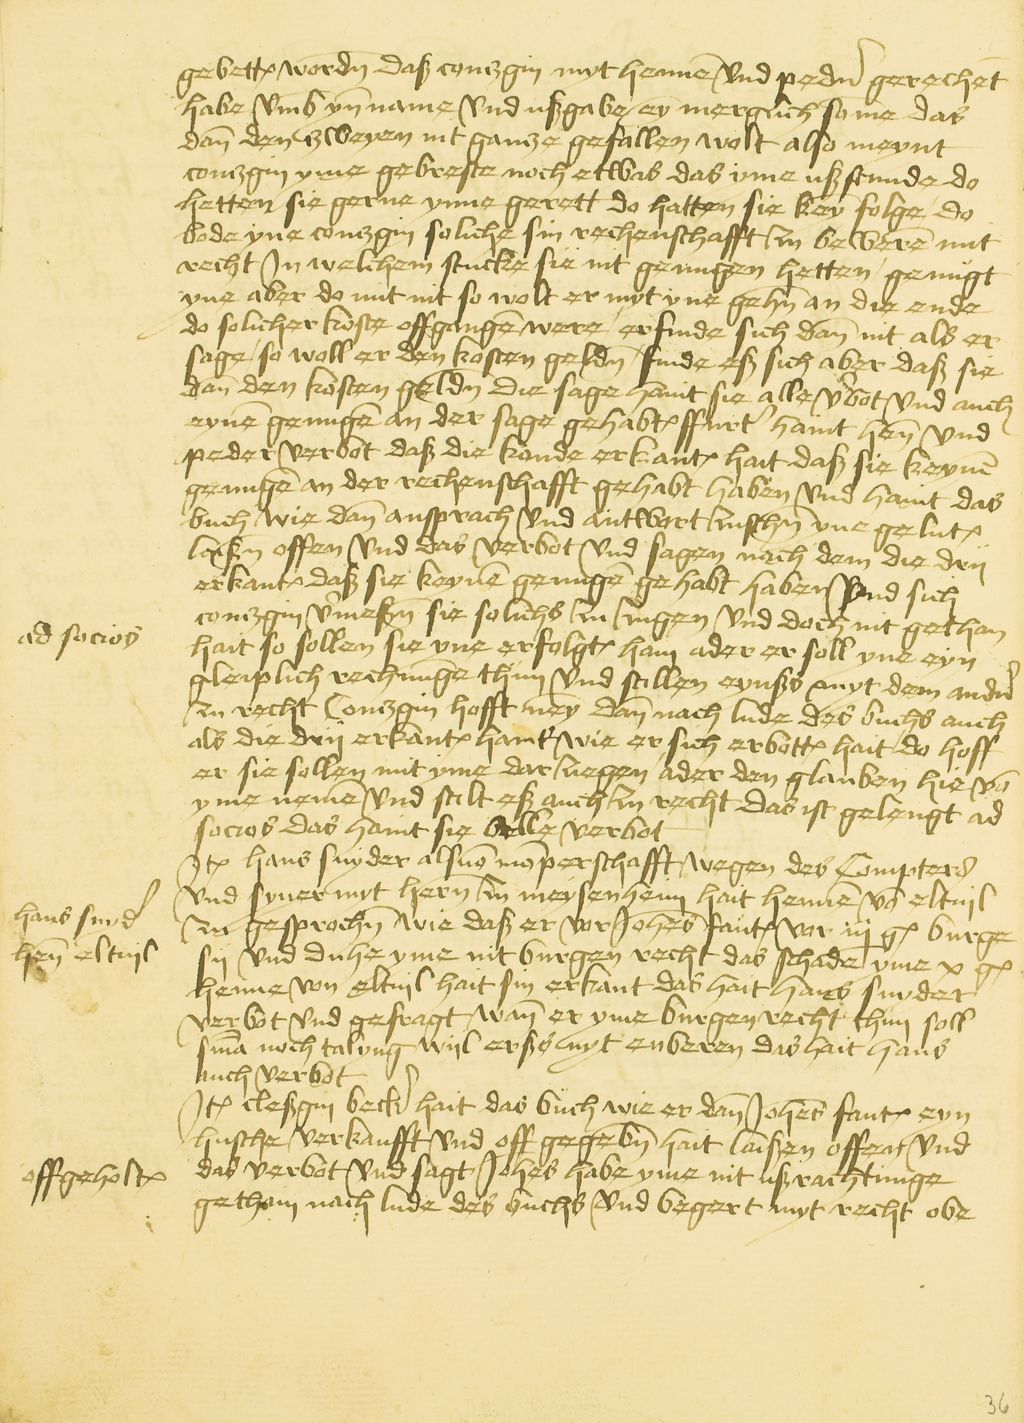 gebett(en) wordn daß contzgin myt hennē vnd pedeʳ gerechēt
habe vmb ynname vnd ußgabe ey merglich som̄e das
dan̄ den zweyen nit gantze gefallen wolt also meynt
contzgin yme gebreste noch etwas das yme uß stunde do
hetten sie gerne ynne gerett do hatten sie key folge do
bode yne contzgin soliche sin rechenschafft zu beweren̄ mit
recht In welchem stucke sie nit genugen hetten genugt
yne aber do mit nit so wolt er myt yne gehn̄ an die ende
do solicher koste offgangē were erfinde sich dan̄ nit als er
sage so woll er den kosten geldn̄ finde eß sich aber daß sie
dan den kosten geldn̄ die sage hant sie alle v'bot vnd auch
eynē genugē an der sage gehabt ffurt' hant hen̄ vnd
peder verbot daß die konde erkant hait daß sie keynē
genugē an der rechenschafft gehabt haben vnd hant das
buch wie dan̄ ansprach vnd antwort zuschn̄ yne gelut
laißn̄ offen vnd das verbot vnd sagen nach dem die drij
erkant daß sie keynē genugē gehabt haben vnd sich
contzgin v'meßn̄ sie solichs zu zugen vnd doch nit gethan
hait so sollen sie yne erfolgt han ader er soll yne eyn
gleiplich rechnunge thun vnd stillen eynßs myt dem andeʳ
zu recht Contzgin hofft ney dan̄ nach lude des buchs auch
als die drij erkant hant wie er sich erbott hait do hoff
er sie sollen mit yme dar ziegen ader den glauben hie vō
yme nemē vnd stilt eß auch zu recht das ist gelengt ad
socios das hant sie alle verbot
ad socios
It(em) hans snyder als vō momperschafft wegen des Compters
vnd syner myt hern̄ zu meysenheim hait hennē vō eltuil
zu gesprochn̄ wie daß er vor Johēs fant vor iij g(u)l(den) burge
sij vnd duhe yme nit burgen recht das schade yme x g(u)l(den)
henne von eltuil hait sin erkant das hait hans snyder
verbot vnd gefragt wan̄ er yme burgen recht thun soll
sin̄a noch talyng wijl erßs nyt enberen das hait hans
auch verbot
hans snydeʳ
hen̄ eltuil
It(em) cleßgin beckeʳ hait das buch wie er dan̄ Johēs fant eyn
husche verkaufft vnd off gegebn̄ hait laißen offen vnd
das verbot vnd sagt Johes habe yme nit ußrachtunge
gethan nach lude des buchs vnd begert myt recht obe
offgeholt(en)
36